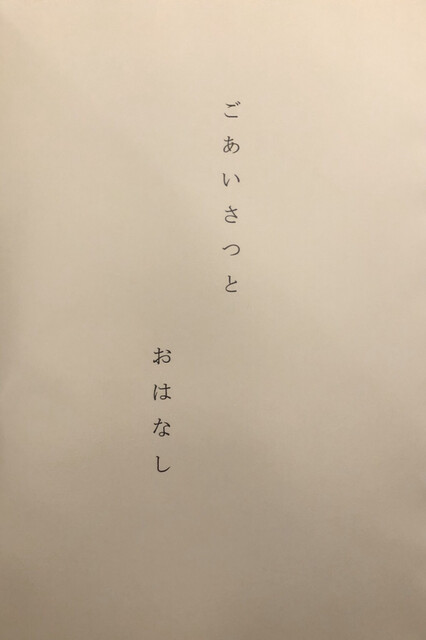 ごあいさつと
おはなし